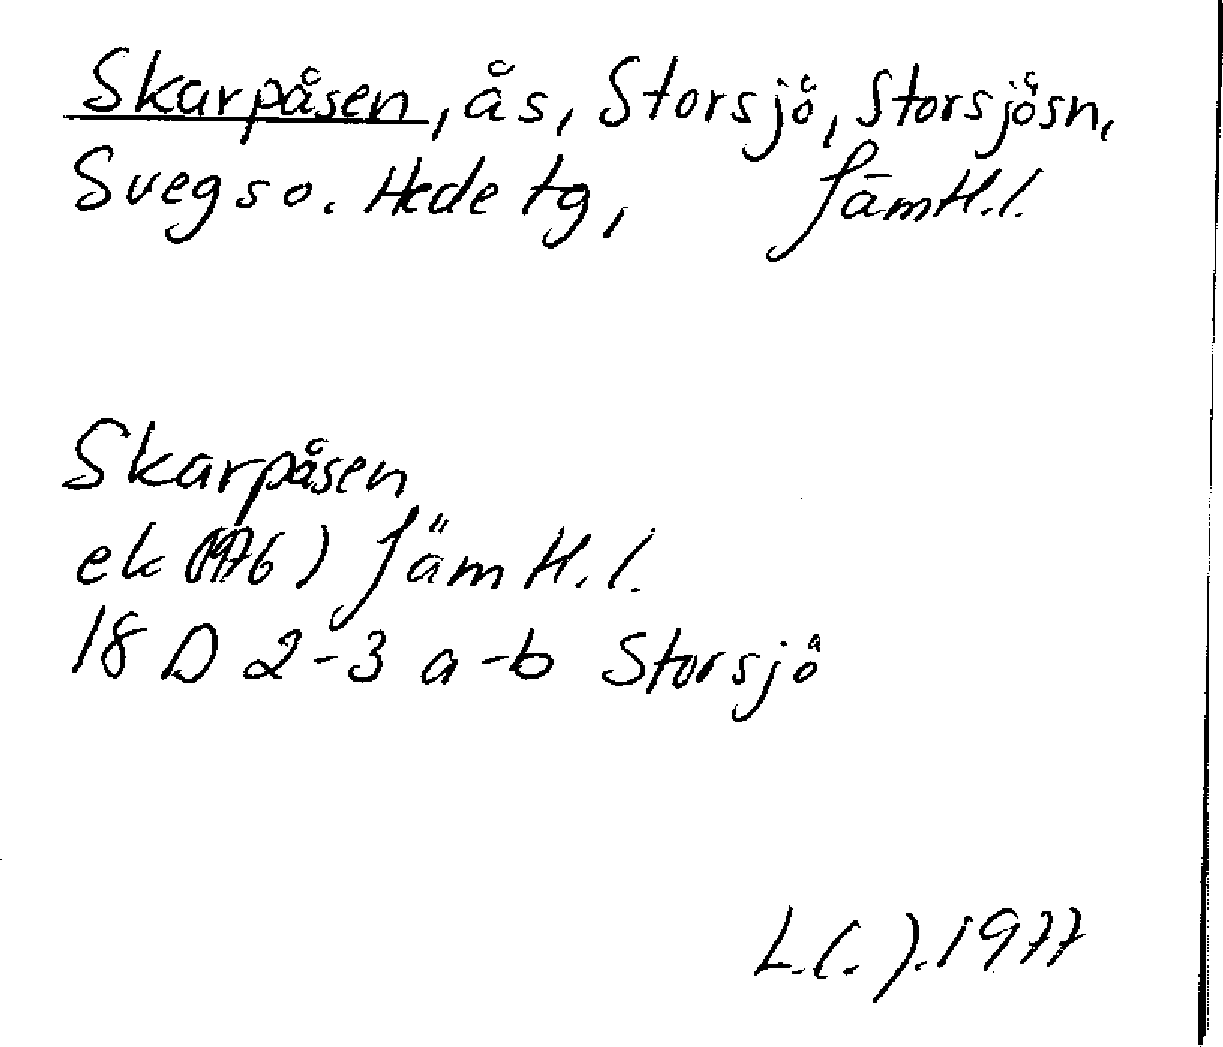 Skarpåsen, ås, Storsjö, Storsjösn,
Svegs o. Hede tg, Jämtl.l.
Skarpåsen
ek (1976) Jämtl.l.
18 D 2-3 a-b Storsjö
L.(.).1977